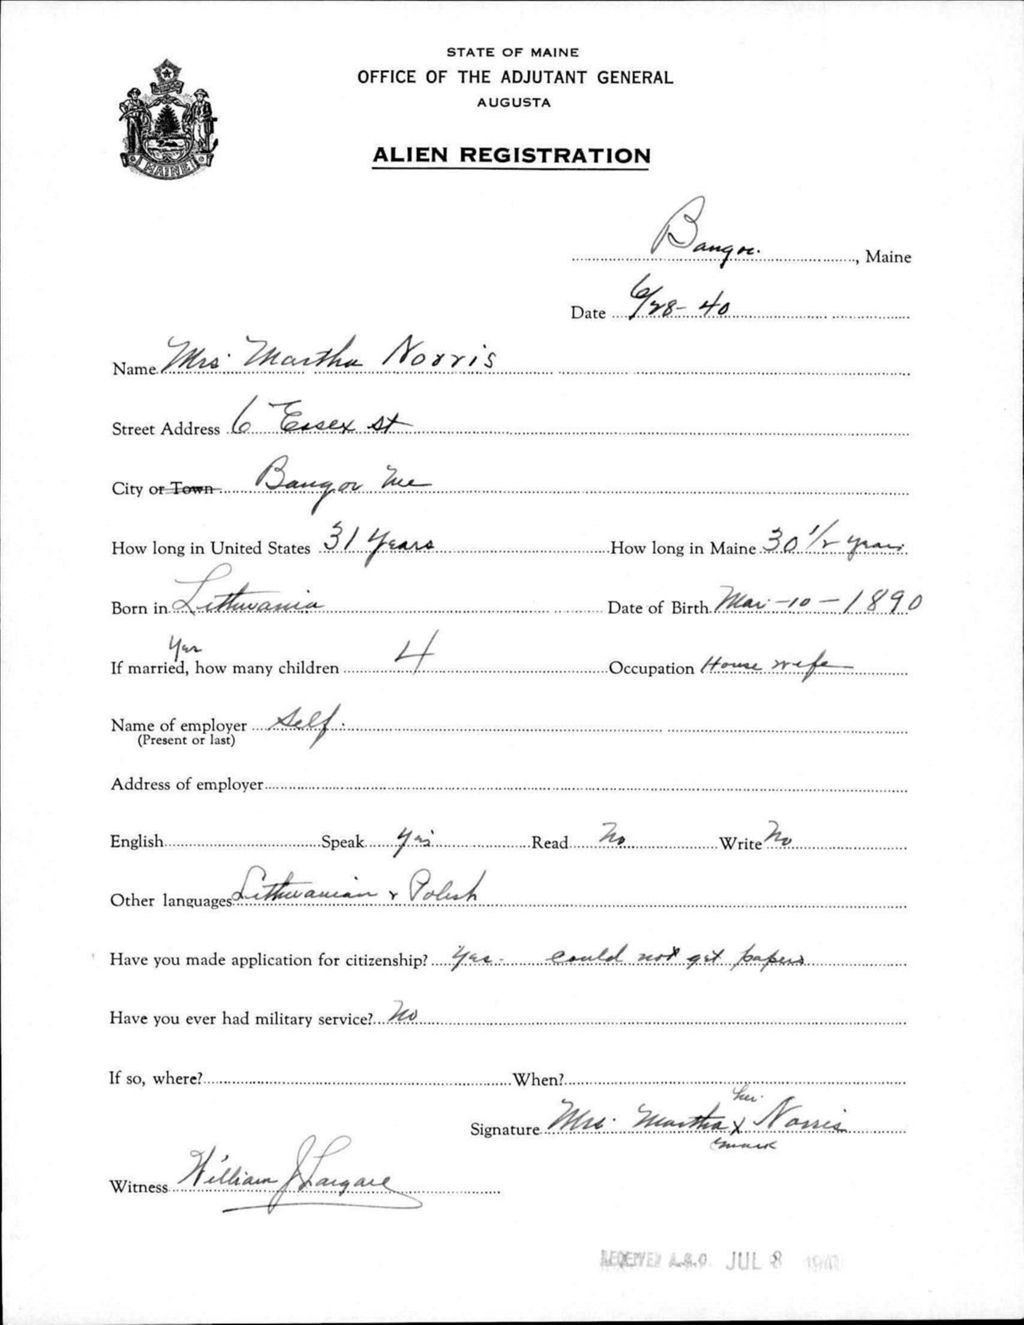 STATE OF MAINE
OFFICE OF THE ADJUTANT GENERAL
AUGUSTA
ALIEN REGISTRATION
MAINE
Bangor, Maine
Date 6/28-40
Name Mrs. Martha Norris
Street Address 6 Essex St
City or Town Bangor Me
How long in United States 31 Years How long in Maine 30 1/2 years
Born in Lithuania Date of Birth Mar-10-1890
Yes
If married, how many children 4 Occupation House wife
Name of employer Self.
(Present or last)
Address of employer
English Speak Yes Read No Write No
Other languages Lithuanian & Polish
Have you made application for citizenship? Yes - could not get papers
Have you ever had military service? No
If so, where? When?
her
Signature Mrs. Martha x Norris
mark
Witness William J
RECEIVED A.G.O. JUL 8 1940